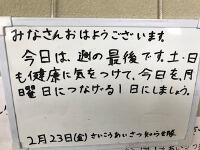 みなさんおはようございます。
今日は、週の最後です。土・日
も健康に気をつけて、今日を、月
曜日につなげる1日にしましょう。
2月23日(金)さいこうあいさつ知らせ隊